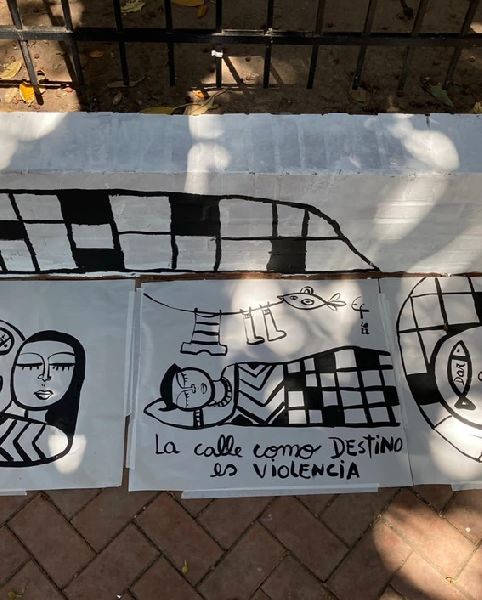 La calle como DESTINO
es VIOLENCIA